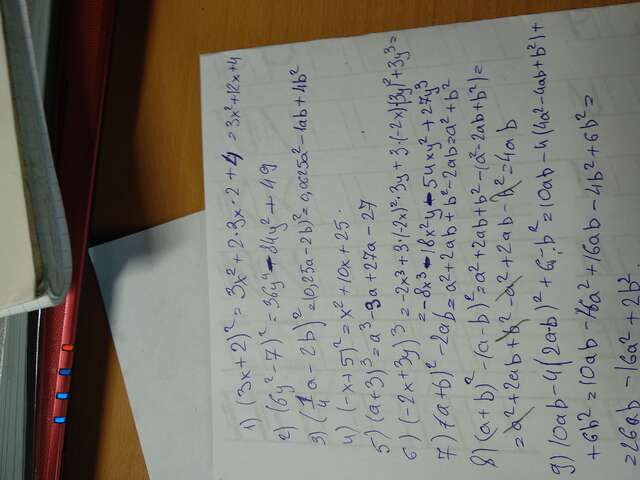 1) (3x+2)² = 3x² + 2·3x·2 + 4 = 3x²+12x+4
2) (6y²-7)² = 36y⁴ - 84y² + 49
3) (1/4 a - 2b)² = (0,25a-2b)² = 0,0625a² - 1ab + 4b²
4) (-x+5)² = x² + 10x + 25.
5) (a+3)³ = a³ - 9a + 27a - 27
6) (-2x+3y)³ = -2x³ + 3·(-2x)²·3y + 3·(-2x)·(3y)² + 3y³ =
= -8x³ - 18x²y - 54xy² + 27y³
7) (a+b)² - 2ab = a² + 2ab + b² - 2ab = a² + b²
8) (a+b)² - (a-b)² = a² + 2ab + b² - (a² - 2ab + b²) =
= a² + 2ab + b² - a² + 2ab - b² = 4ab
9) 10ab - 4(2a-b)² + 6b² = 10ab - 4(4a² - 4ab + b²) +
+ 6b² = 10ab - 16a² + 16ab - 4b² + 6b² =
= 26ab - 16a² + 2b².